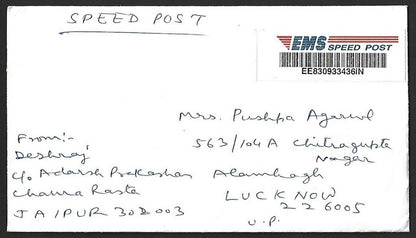 SPEED POST
EMS SPEED POST
EE830933436IN
Mrs. Pushpa Agarwal
563/104A Chitragupta
Nagar
Alambagh
LUCKNOW
226005
U.P.
From:-
Deshraj
C/o Adarsh Prakashan
Chaura Rasta
JAIPUR 302003